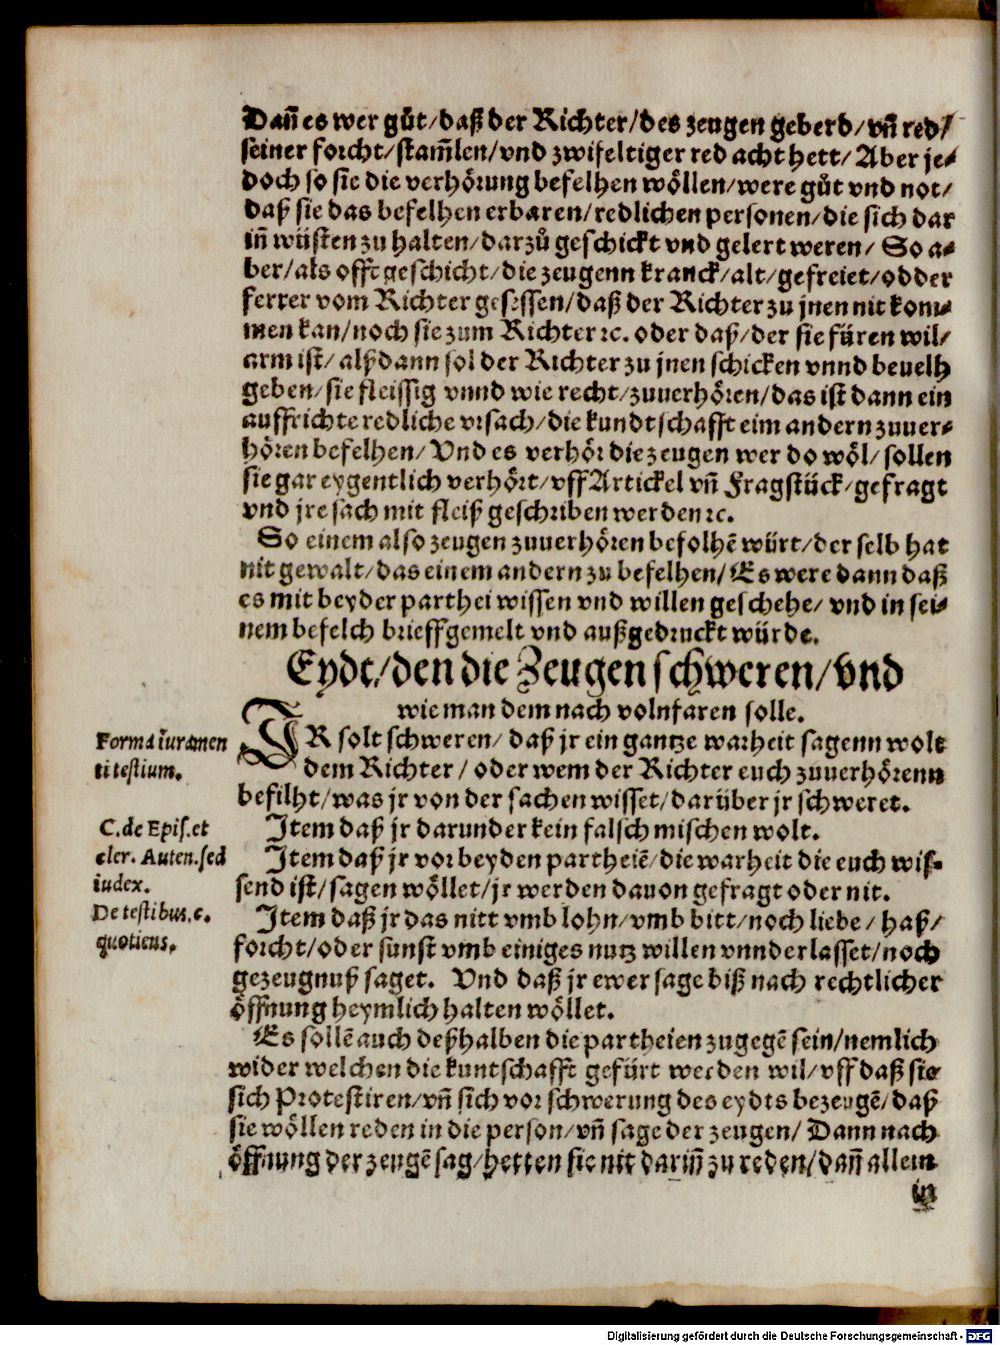 Dañ es wer gůt/daß der Richter/des zeugen geberd/vñ red/
seiner forcht/stam̃len/vnd zwifeltiger red acht hett/Aber je⸗
doch so sie die verhörung befelhen wöllen/were gůt vnd not/
daß sie das befelhen erbaren/redlichen personen/die sich dar
in̄ wüsten zu halten/darzů geschickt vnd gelert weren/ So a⸗
ber/als offt geschicht/die zeugenn kranck/alt/gefreiet/odder
ferrer vom Richter gesessen/daß der Richter zu jnen nit kom⸗
men kan/noch sie zum Richter ꝛc. oder daß/der sie füren wil/
arm ist/ alß dann sol der Richter zu jnen schicken vnnd beuelh
geben/sie fleissig vnnd wie recht/zuuerhören/das ist dann ein
auffrichte redliche vrsach/die kundtschafft eim andern zuuer⸗
hören befelhen/Vnd es verhör die zeugen wer do wöl/sollen
sie gar eygentlich verhört/vff Artickel vñ Fragstück/gefragt
vnd jre sach mit fleiß geschriben werden ꝛc.
So einem also zeugen zuuerhören befolhē würt/der selb hat
nit gewalt/das einem andern zu befelhen/Es were dann daß
es mit beyder parthei wissen vnd willen geschehe/ vnd in sei⸗
nem befelch brieff gemelt vnd außgedruckt würde.
Eydt/den die Zeugen schweren/vnd
wie man dem nach volnfaren solle.
IR solt schweren/ daß jr ein gantze warheit sagenn wolt
dem Richter / oder wem der Richter euch zuuerhörenn
befilht/was jr von der sachen wisset/darüber jr schweret.
Item daß jr darunder kein falsch mischen wolt.
Item daß jr vor beyden partheiē/die warheit die euch wis⸗
send ist/sagen wöllet/jr werden dauon gefragt oder nit.
Item daß jr das nitt vmb lohn/vmb bitt/noch liebe/ haß/
forcht/oder sunst vmb einiges nutz willen vnnderlasset/noch
gezeugnuß saget. Vnd daß jr ewer sage biß nach rechtlicher
öffnung heymlich halten wöllet.
Es sollē auch deßhalben die partheien zugegē sein/nemlich
wider welchen die kuntschafft gefürt werden wil/vff daß sie
sich Protestiren/vñ sich vor schwerung des eydts bezeugē/daß
sie wöllen reden in die person/vñ sage der zeugen/ Dann nach
öffnung der zeugē sag/hetten sie nit dariñ zu reden/dañ allein
in
Forma iuramen
ti testium.
C. de Epis. et
cler. Auten. sed
iudex.
De testibus. c.
quotiens.
Digitalisierung gefördert durch die Deutsche Forschungsgemeinschaft - DFG